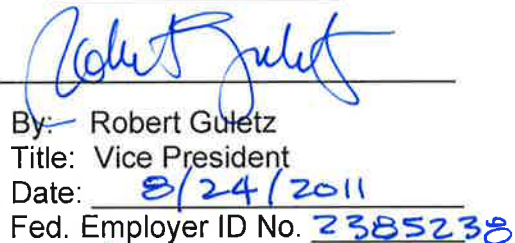 By: Robert Guletz
Title: Vice President
Date: 8/24/2011
Fed. Employer ID No. 238523